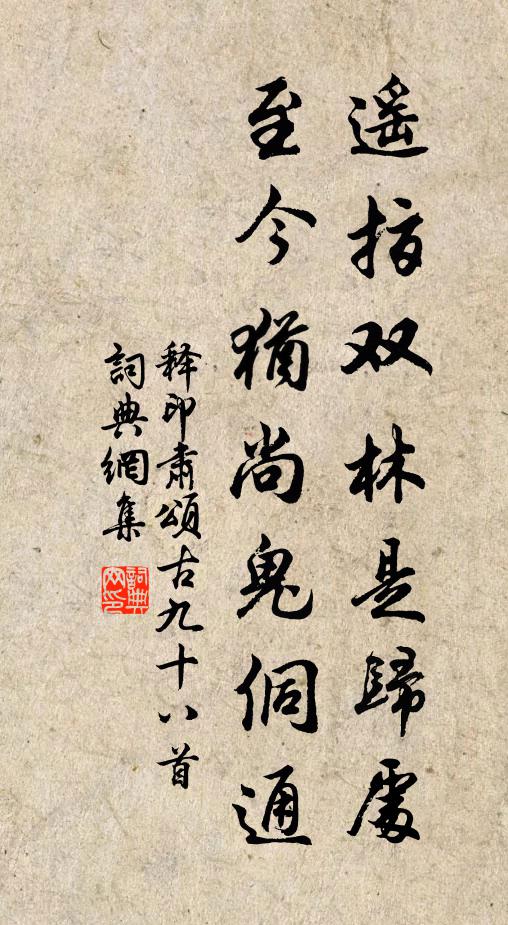 遥指双林是歸處
至今猶尚鬼侗通
释印肃頌古九十八首
詞典網集
詞典网印